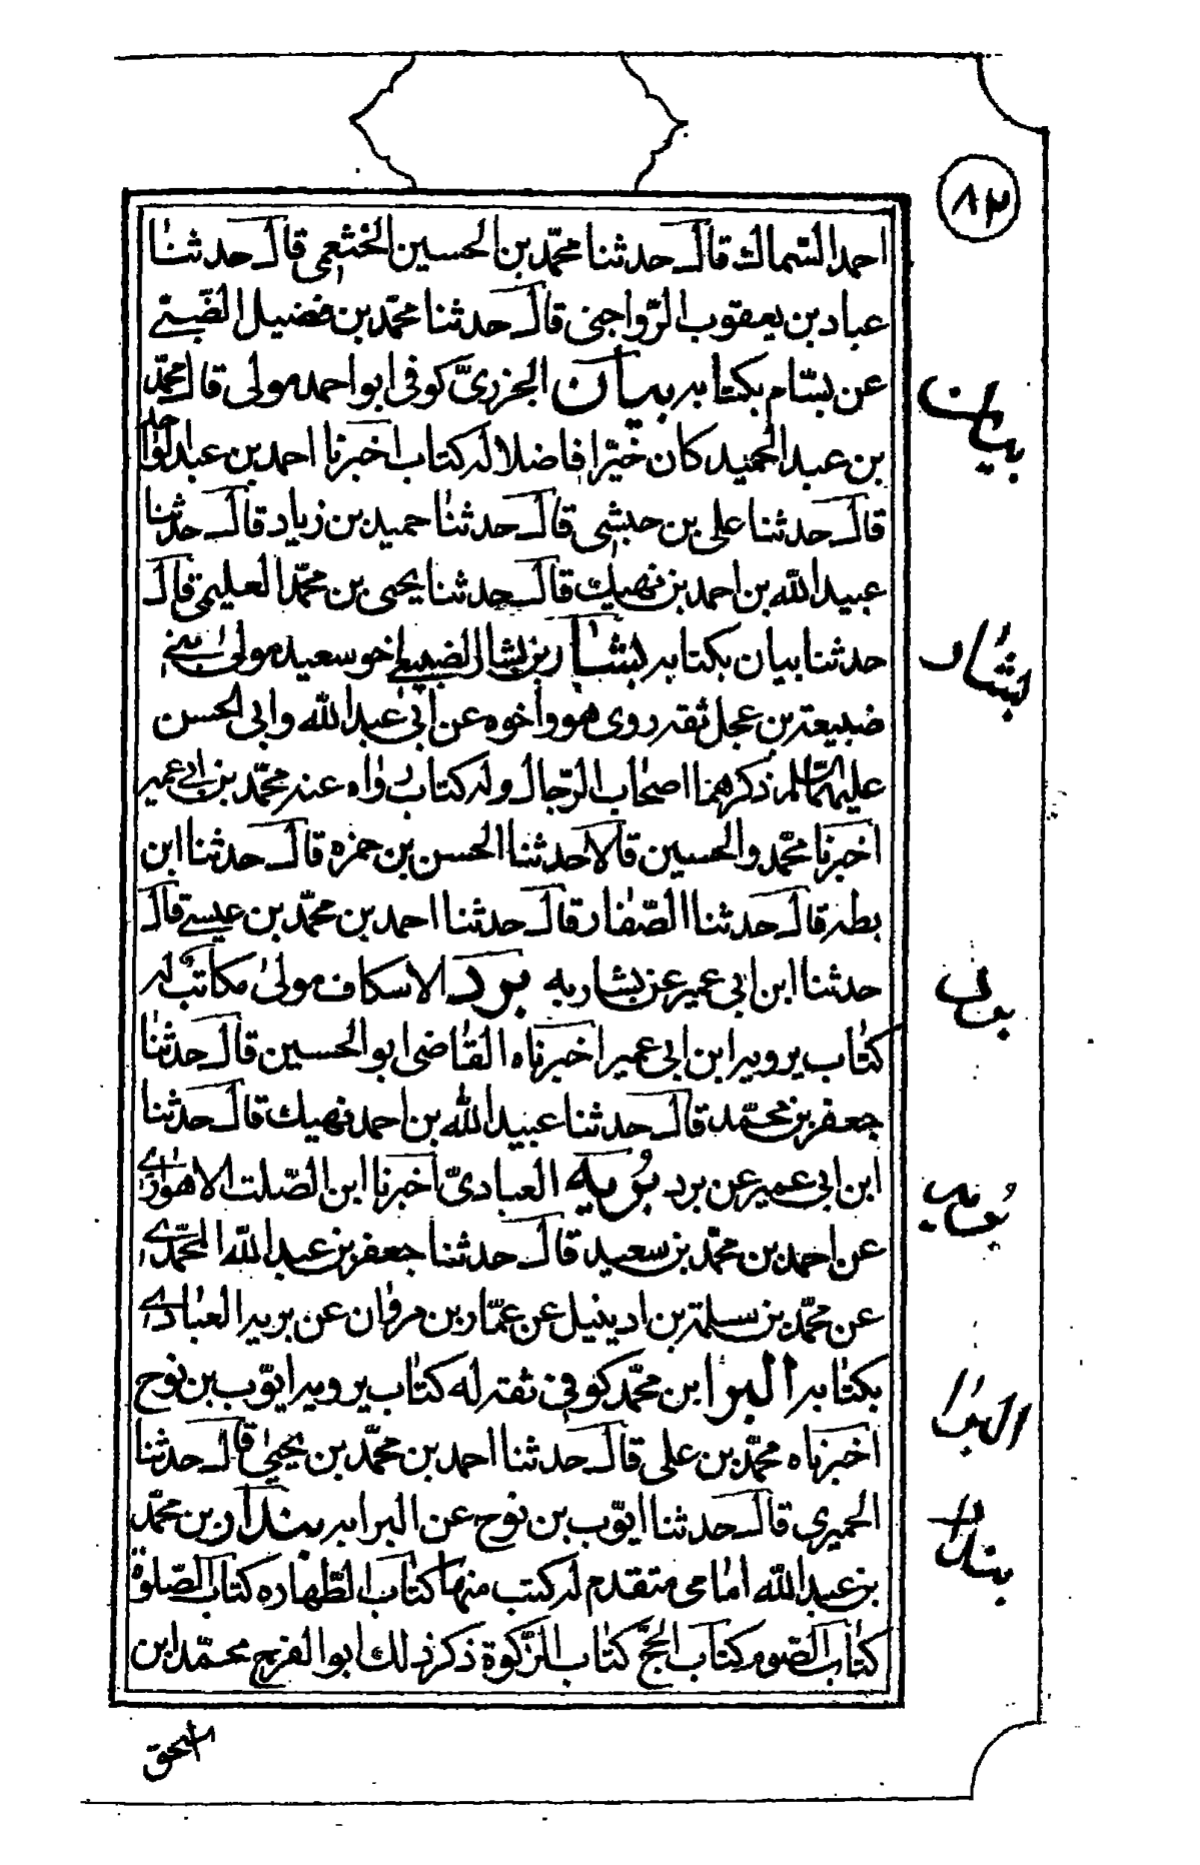 ٨٣
احمد السّماك قال حدثنا محمّد بن الحسين الخثعمي قال حدثنا
عباد بن يعقوب الرّواجني قال حدثنا محمّد بن فضيل الضّبّي
عن بسّام بكتابه بيان الجزريّ كوفي ابو احمد مولى قال محمّد
بيان
بن عبد الحميد كان خيّرا فاضلا له كتاب اخبرنا احمد بن عبد الواحد
قال حدثنا علي بن حبشي قال حدثنا حميد بن زياد قال حدثنا
عبيد الله بن احمد بن نهيك قال حدثنا يحيى بن محمّد العليمي قال
حدثنا بيان بكتابه بشار بن بشار الضبيعي اخو سعيد مولى بني
بشار
ضبيعة بن عجل ثقة روى هو واخوه عن ابي عبد الله وابي الحسن
عليهما السلم ذكرهما اصحاب الرّجال وله كتاب رواه عنه محمّد بن ابي عمير
اخبرنا محمّد والحسين قالا حدثنا الحسن بن حمزه قال حدثنا ابن
بطه قال حدثنا الصّفار قال حدثنا احمد بن محمّد بن عيسى قال
حدثنا ابن ابي عمير عن بشار به برد الاسكاف مولى مكاتب له
برد
كتاب يرويه ابن ابي عمير اخبرناه القاضي ابو الحسين قال حدثنا
جعفر بن محمّد قال حدثنا عبيد الله بن احمد نهيك قال حدثنا
ابن ابي عمير عن برد بُريه العباديّ اخبرنا ابن الصّلت الاهوازي
بُريه
عن احمد بن محمّد بن سعيد قال حدثنا جعفر بن عبد الله المحمّدي
عن محمّد بن سلمة بن ادينيل عن عمّار بن مروان عن بريه العبادي
بكتابه البرا ابن محمّد كوفي ثقة له كتاب يرويه ايّوب بن نوح
البرا
اخبرناه محمّد بن علي قال حدثنا احمد بن محمّد بن يحيى قال حدثنا
الحميري قال حدثنا ايّوب بن نوح عن البرا به بندار بن محمّد
بندار
بن عبد الله امامي متقدم له كتب منها كتاب الطّهاره كتاب الصّلوة
كتاب الصّوم كتاب الحجّ كتاب الزّكوة ذكر ذلك ابو الفرج محمّد ابن
اسحق